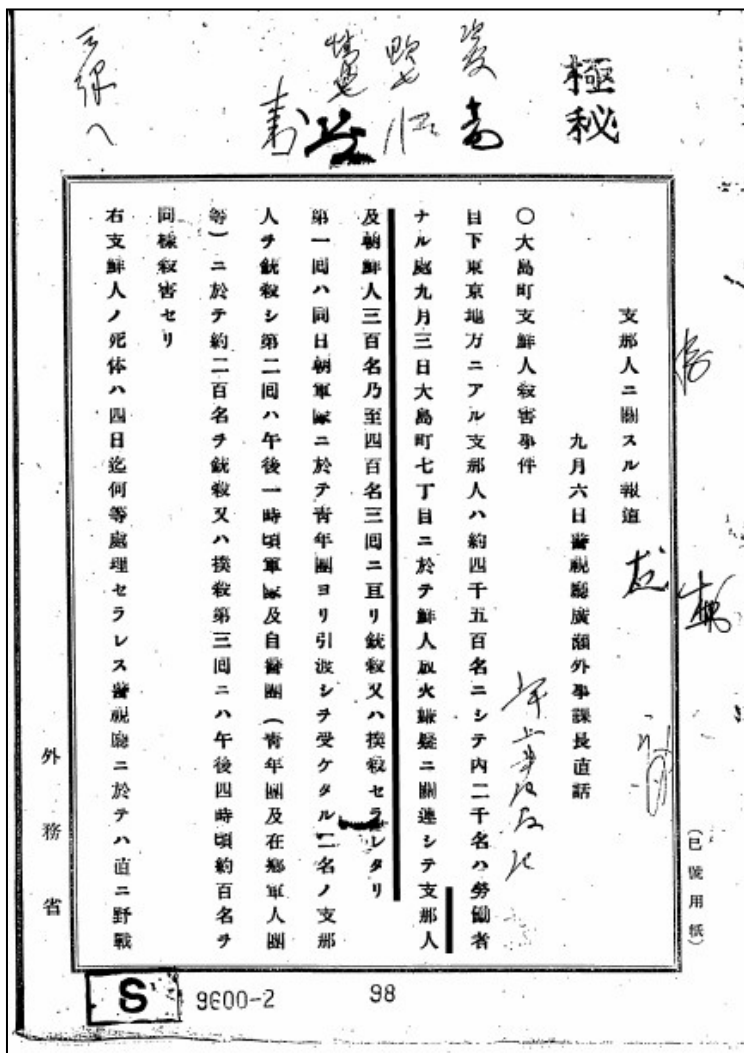 極秘
支那人ニ關スル報道
九月六日警視廳廣瀬外事課長直話
〇大島町支鮮人殺害事件
目下東京地方ニアル支那人ハ約四千五百名ニシテ内二千名ハ勞働者
ナル處九月三日大島町七丁目ニ於テ鮮人放火嫌疑ニ關連シテ支那人
及朝鮮人三百名乃至四百名三囘ニ亘リ銃殺又ハ撲殺セラレタリ
第一囘ハ同日朝軍隊ニ於テ靑年團ヨリ引渡シヲ受ケタル二名ノ支那
人ヲ銃殺シ第二囘ハ午後一時頃軍隊及自警團(靑年團及在鄕軍人團
等)ニ於テ約二百名ヲ銃殺又ハ撲殺第三囘ニハ午後四時頃約百名ヲ
同樣殺害セリ
右支鮮人ノ死体ハ四日迄何等處理セラレス警視廳ニ於テハ直ニ野戰
(巳號用紙)
外務省
S 9600-2
98